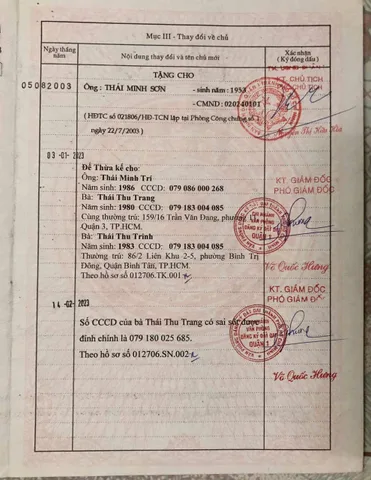 Mục III - Thay đổi về chủ
Ngày tháng năm
Nội dung thay đổi và tên chủ mới
Xác nhận
(Ký đóng dấu)
TẶNG CHO
KT. CHỦ TỊCH
05082003
Ông : THÁI MINH SƠN - sinh năm : 1953
- CMND : 020240101
(HĐTC số 021806/HĐ-TCN lập tại Phòng Công chứng số 1
ngày 22/7/2003 )
03-01-2023
Để Thừa kế cho:
Ông: Thái Minh Trí
Năm sinh: 1986 CCCD: 079 086 000 268
Bà: Thái Thu Trang
Năm sinh: 1980 CCCD: 079 183 004 085
Cùng thường trú: 159/16 Trần Văn Đang, phường
Quận 3, TP.HCM.
Bà: Thái Thu Trinh
Năm sinh: 1983 CCCD: 079 183 004 085
Thường trú: 86/2 Liên Khu 2-5, phường Bình Trị
Đông, Quận Bình Tân, TP.HCM.
Theo hồ sơ số 012706.TK.001
KT. GIÁM ĐỐC
PHÓ GIÁM ĐỐC
CHI NHÁNH
VĂN PHÒNG
ĐĂNG KÝ ĐẤT ĐAI
QUẬN 1
Võ Quốc Hưng
14-02-2023
Số CCCD của bà Thái Thu Trang có sai sót được
đính chính là 079 180 025 685.
Theo hồ sơ số 012706.SN.002
KT. GIÁM ĐỐC
PHÓ GIÁM ĐỐC
CHI NHÁNH
VĂN PHÒNG
ĐĂNG KÝ ĐẤT ĐAI
QUẬN 1
Võ Quốc Hưng